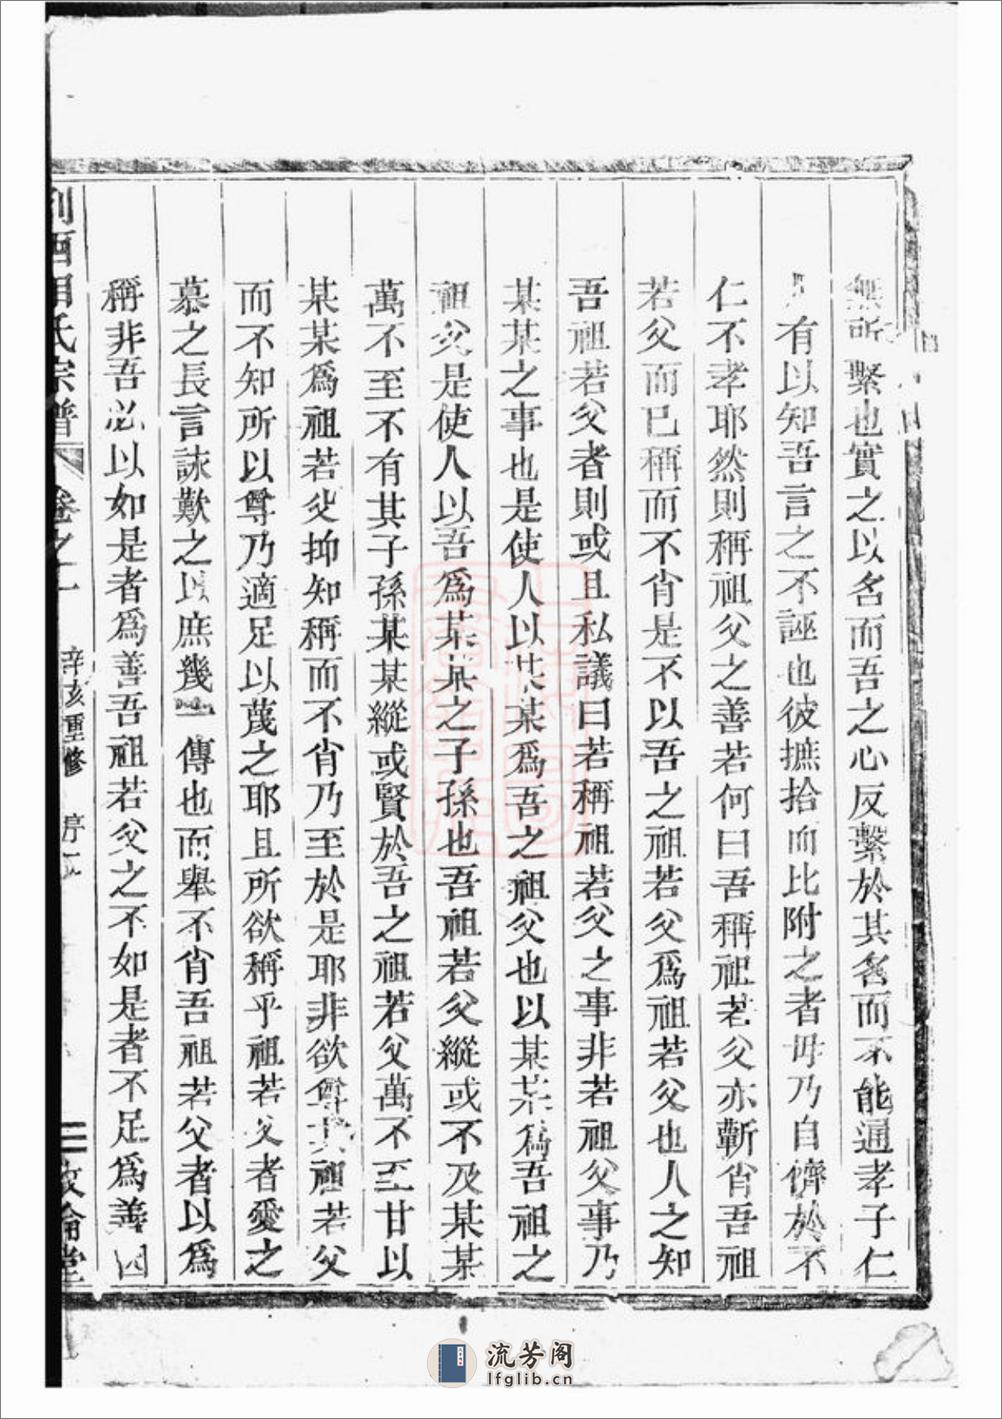 無所繫也實之以名而吾之心反繫於其名而不能通孝子仁
人有以知吾言之不誣也彼摭拾而比附之者毋乃自儕於不
仁不孝耶然則稱祖父之善若何曰吾稱祖若父亦蘄肖吾祖
若父而已稱而不肖是不以吾之祖若父爲祖若父也人之知
吾祖若父者則或且私議曰若稱祖若父之事非若祖父事乃
某某之事也是使人以某某爲吾之祖父也以某某爲吾祖之
祖父是使人以吾爲某某之子孫也吾祖若父縱或不及某某
萬不至不有其子孫某某縱或賢於吾之祖若父萬不至甘以
某某爲祖若父抑知稱而不肖乃至於是耶非欲尊其祖若父
而不知所以尊乃適足以蔑之耶且所欲稱乎祖若父者愛之
慕之長言詠歎之以庶幾一傳也而舉不肖吾祖若父者以爲
稱非吾必以如是者爲善吾祖若父之不如是者不足爲善因
氏宗譜 卷之 辛亥重修 序 二 敦倫堂
流芳阁
lfglib.cn